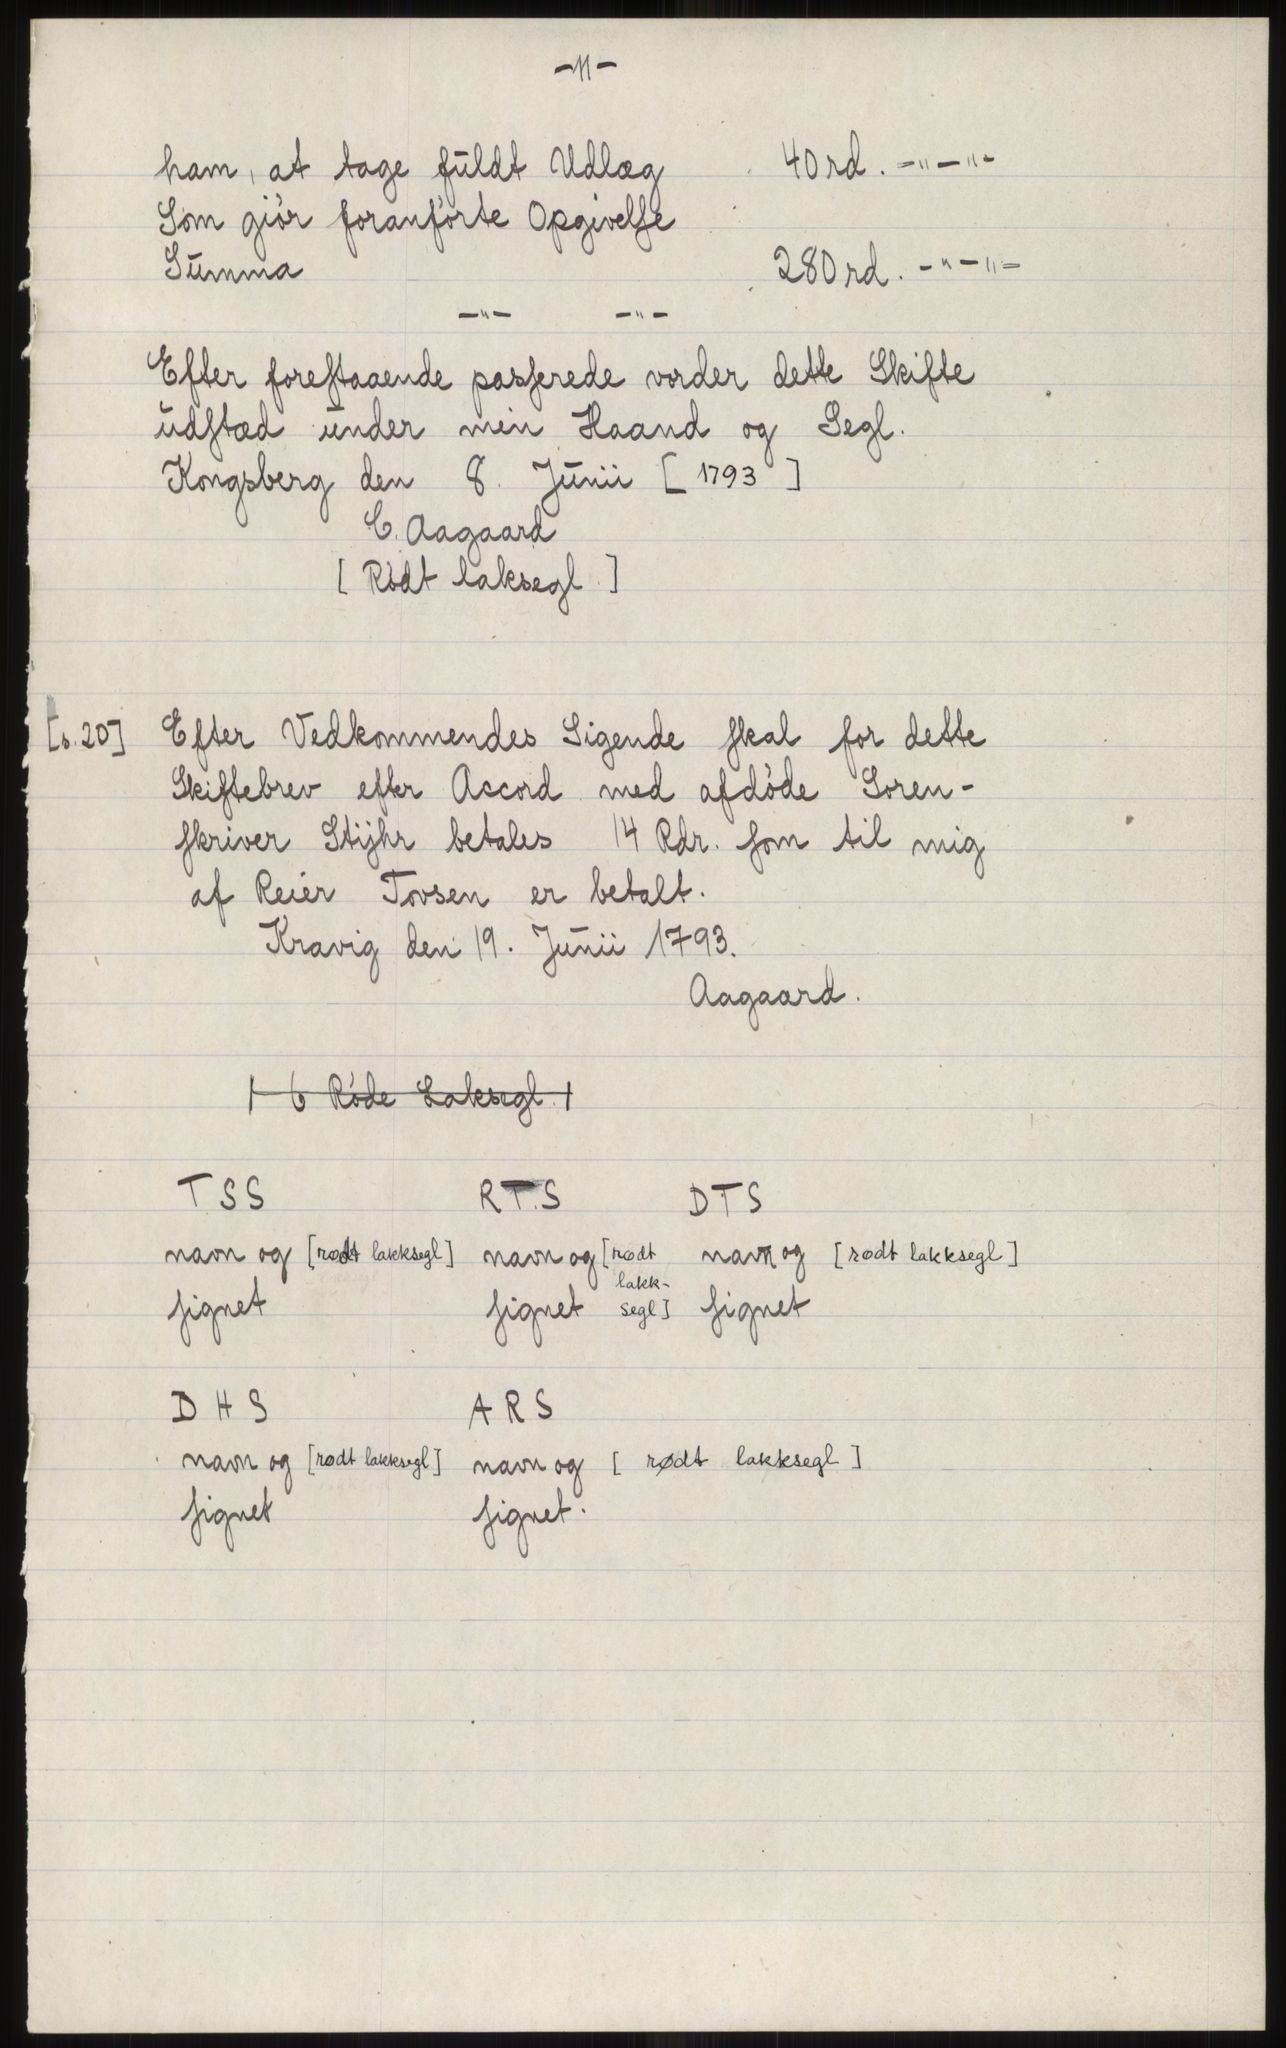 -11-
ham, at tage fúldt Udlæg 40 rd. -"-"-
Som giór foranfórte Opgivelſe
Súmma 280 rd. -"-"-
-"- -"-
Efter foreſtaaende pasſerede vorder dette Skifte
údſtæd únder min Haand og Segl.
Kongsberg den 8. Júnii [1793]
C. Aagaard
[Ródt laksegl.]
[s.20] Efter Vedkommendes Sigende ſkal for dette
Skiftebrev efter Accord med afdóde Soren-
ſkriver Stijhr betales 14 Rdr. ſom til mig
af Reier Tovsen er betalt.
Kravig den 19. Júnii 1793.
Aagaard.
/ 6 Róde Laksegl. /
TSS RT.S DTS
navn og [rødt lakksegl] navn og [rødt navn og [rødt lakksegl]
lakk-
ſignet ſignet segl] ſignet
DHS ARS
navn og [rødt lakksegl] navn og [rødt lakksegl]
ſignet ſignet.